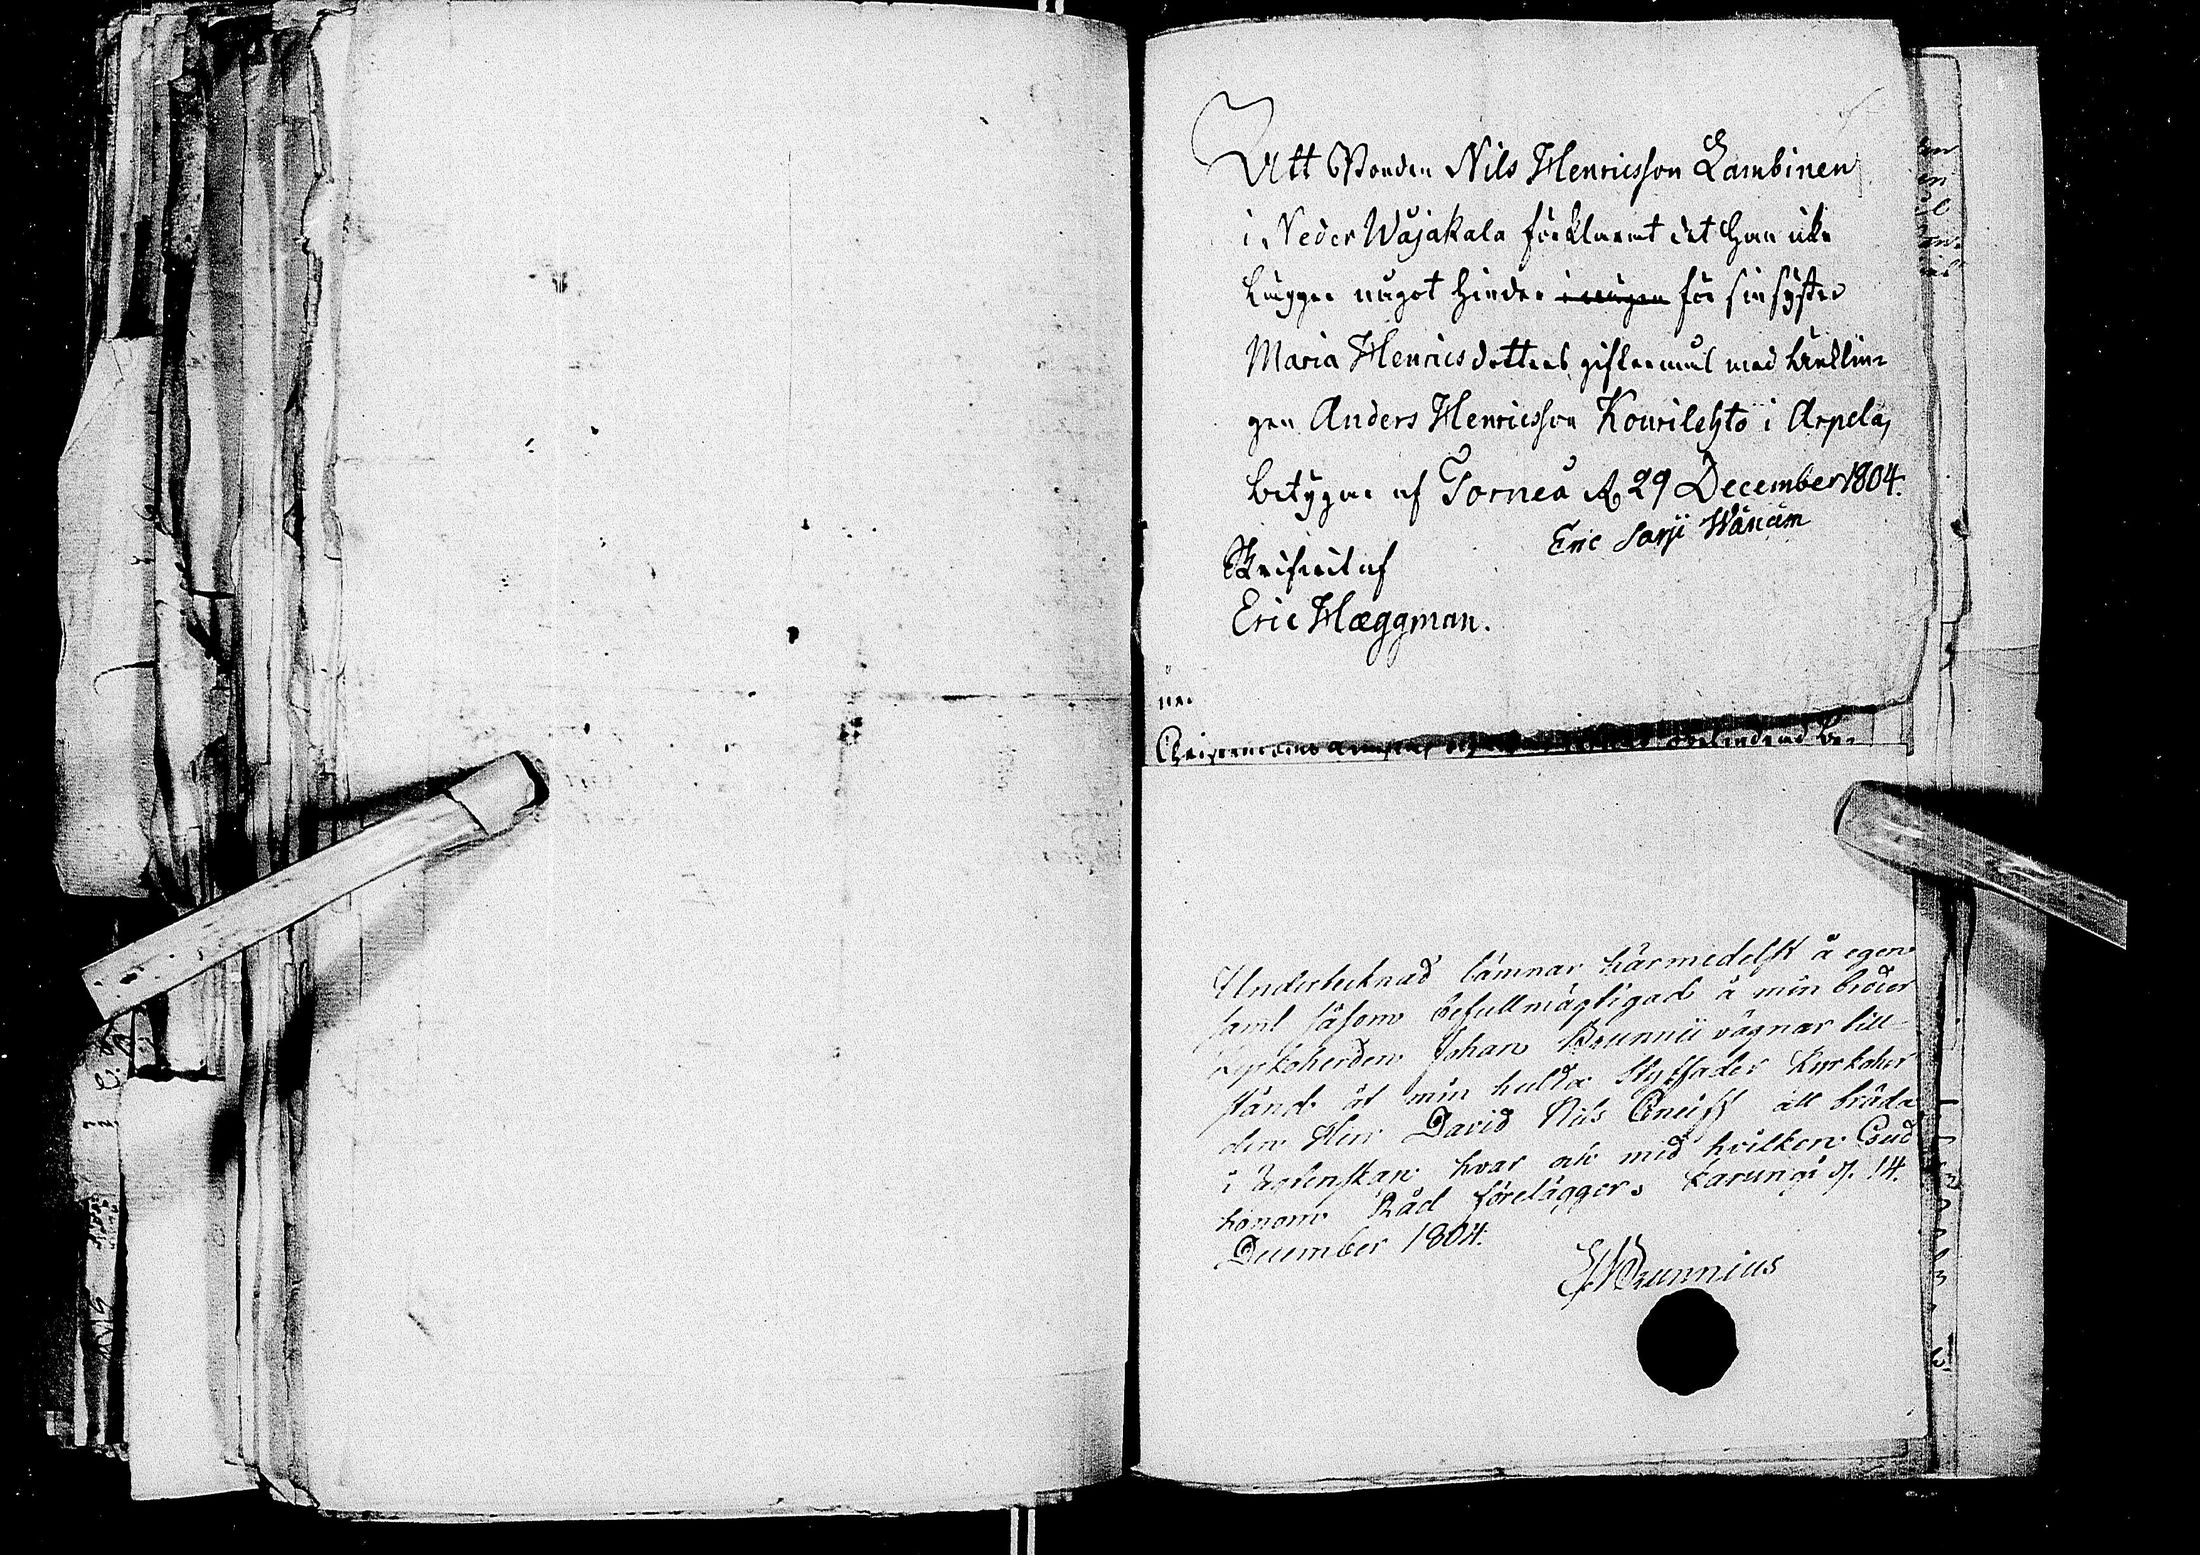 Att Bonden Nils Henricsson Lambinen
i Neder Wojakala förklarat det han icke
lägger något hinder i wägen för sin syster
Maria Henricsdotters giftermål med Ynklin-
gen Anders Henricsson Kourilehto i Arpela,
betygar af Torneå d. 29 December 1804.
Eric
Skrifvit af
Eric Hæggman.
ne.
Undertecknad lämnar härmedelst å egen
samt såsom befullmägtigad å min broder
Kyrkoherden Johan Brunnii vägnar till-
stånd åt min hulda Styffader Kyrkoher
den Herr David Nils Cneiff att träda
i äktenskap hvar och med hvilken Gud
honom Råd förelägger. Karungi d. 14.
December 1804.
Brunnius